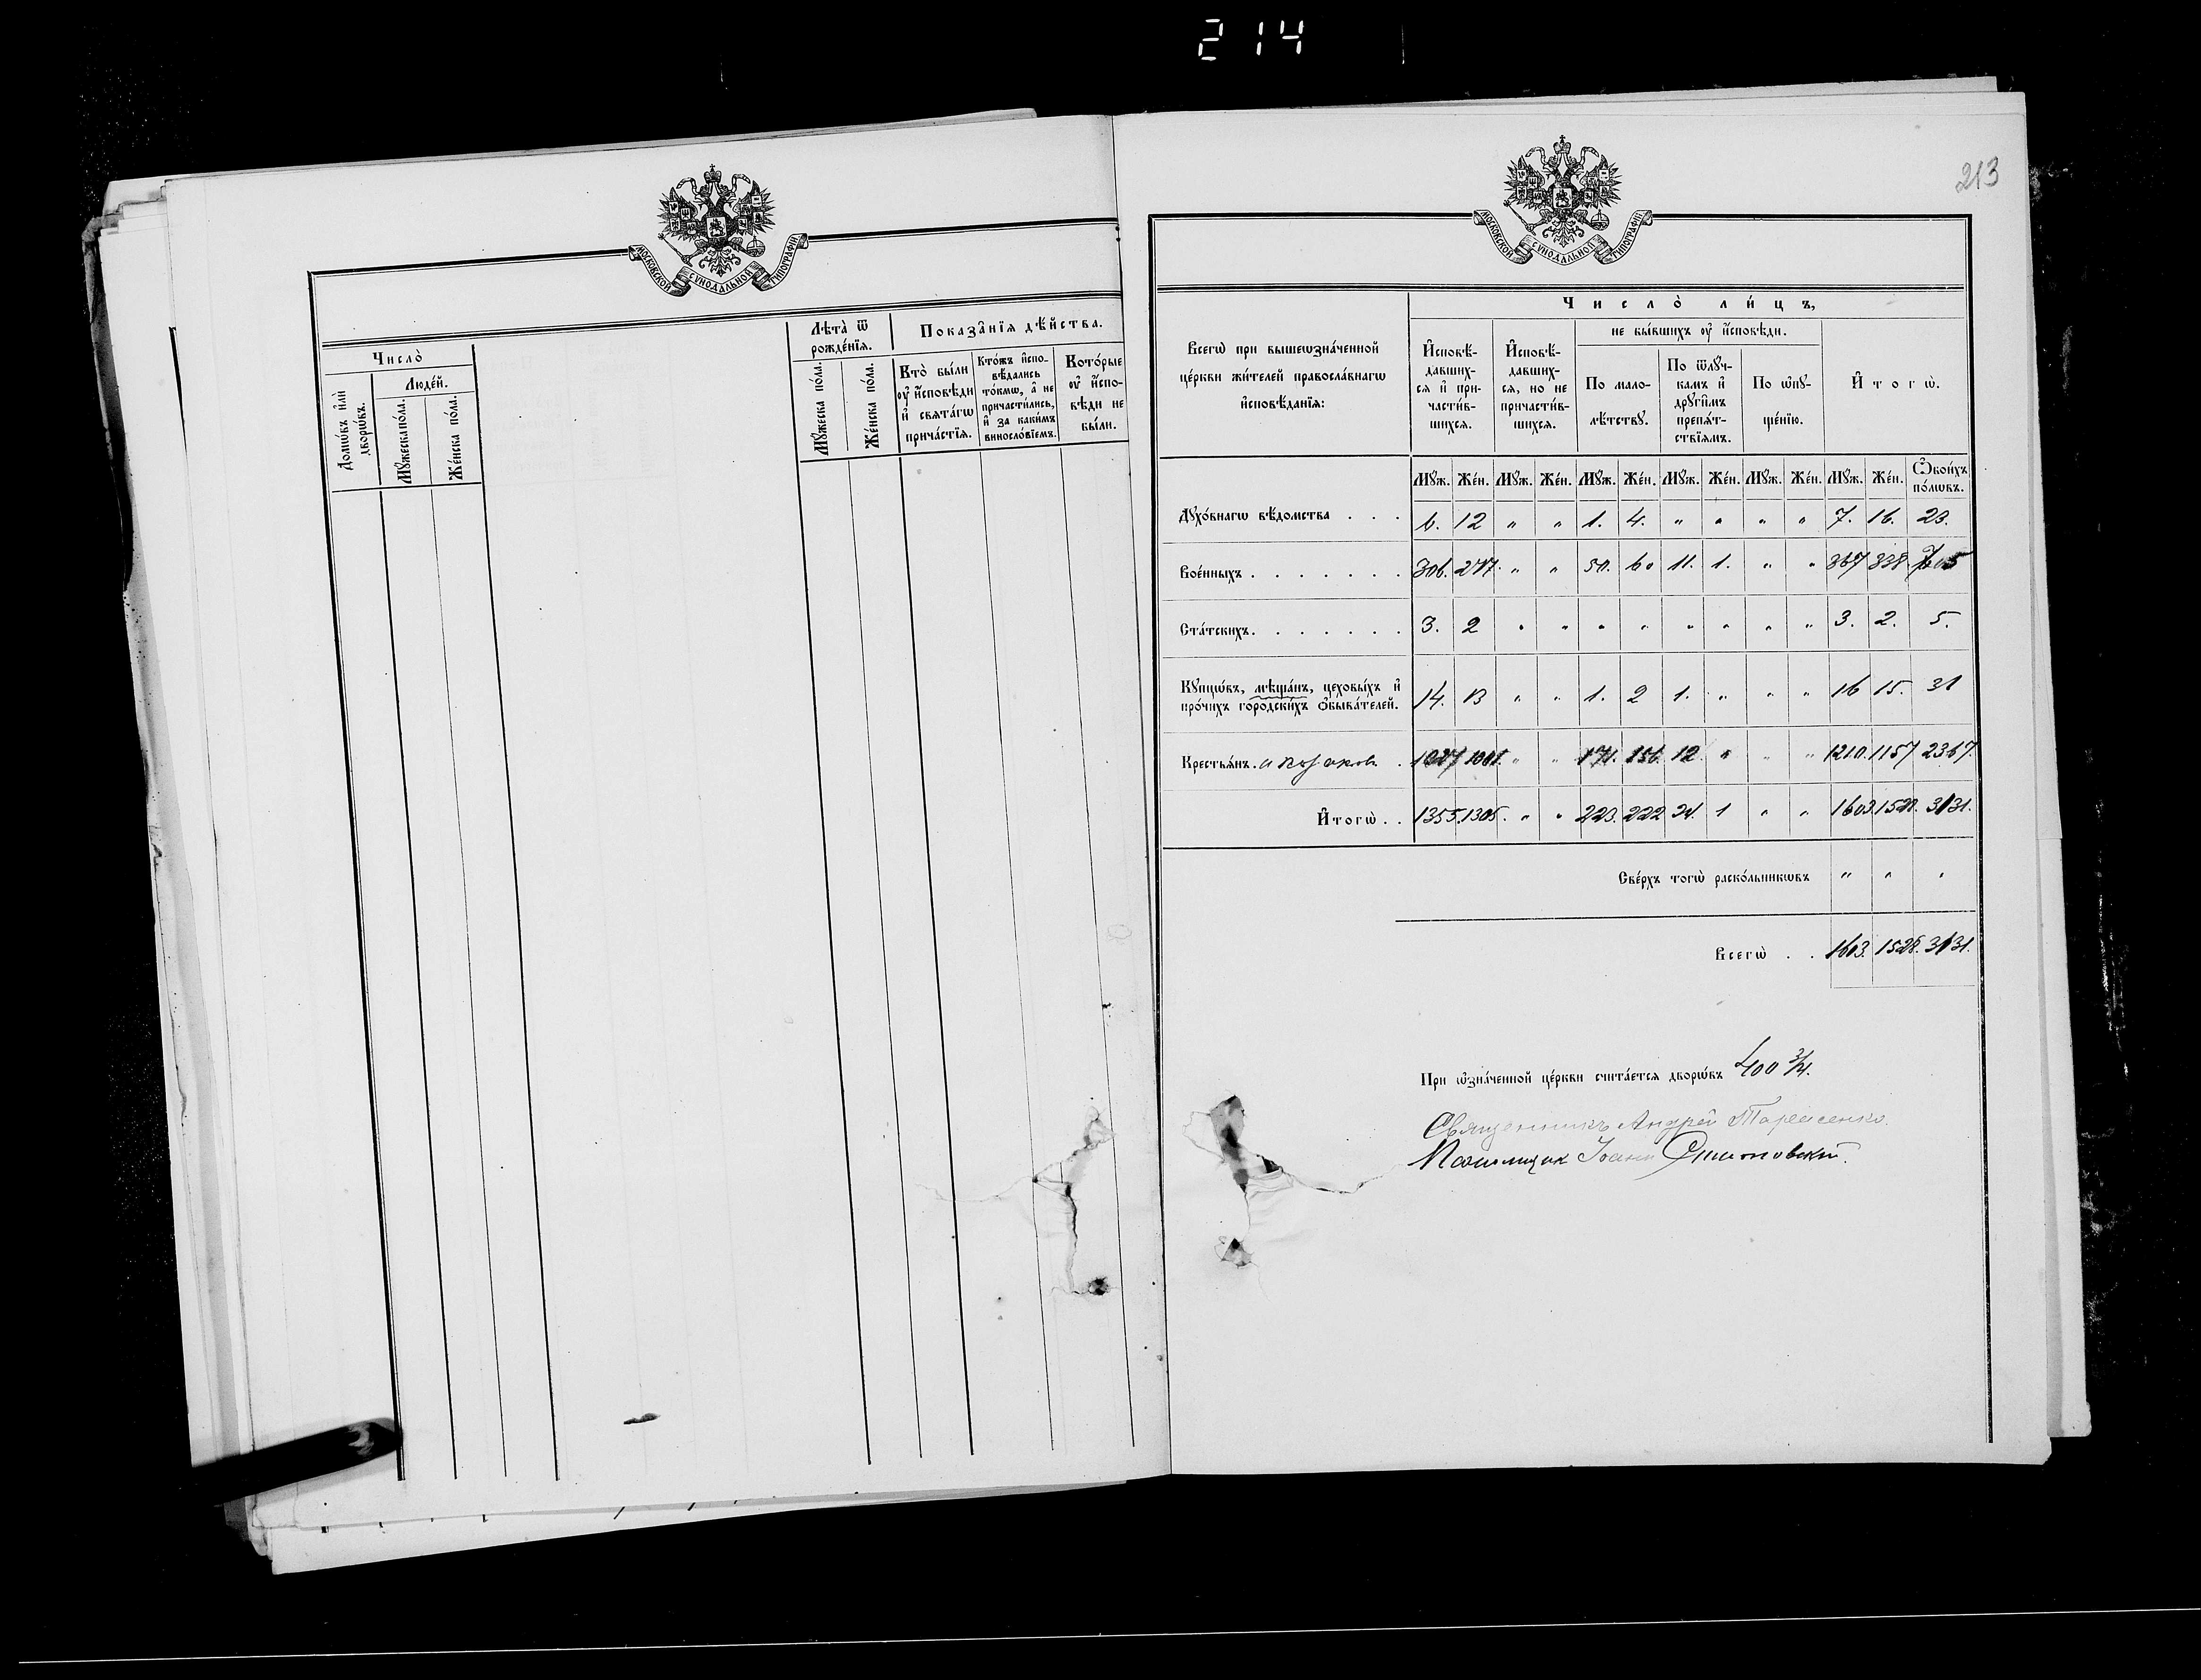 214
213
МОСКОВСКОЙ СѴНОДАЛЬНОЙ ТИПОГРАФІИ
Число̀
Людѐй.
Домѡ́въ и҆лѝ дворѡ́въ.
Мꙋ́жеска по́ла.
Же́нска по́ла.
Лѣта̀ ѿ рожде́нїѧ.
Мꙋ́жеска по́ла.
Же́нска по́ла.
Показа̑нїѧ дѣ́йства.
Кто̀ бы́ли оу҆ и҆́сповѣди и҆ свѧта́гѡ прича́стїѧ.
Кто́жъ и҆спо-
вѣ́дались то́кмѡ, а҆ не причасти́лись, и҆ за каки́мъ винosло́вїемъ.
Кото́рые оу҆ и҆́спо-
вѣди не бы́ли.
МОСКОВСКОЙ СѴНОДАЛЬНОЙ ТИПОГРАФІИ
Всегѡ̀ при вышеѡзна́ченной це́ркви жи́телей правосла́внагѡ и҆сповѣ́данїѧ:
Число̀ ли́цъ,
И҆сповѣ́-
давших-
сѧ и҆ при-
части́в-
шихсѧ.
И҆сповѣ́-
давших-
сѧ, но не
причасти́в-
шихсѧ.
не бы́вшихъ оу҆ и҆́сповѣди.
По мало-
лѣ́тствꙋ.
По ѿлꙋч-
камъ и҆
дрꙋги̑мъ
препѧ́т-
ствїѧмъ.
По ѡ҆пꙋ-
ще́нїю.
И҆тогѡ̀.
Мꙋж. Же́н. Мꙋж. Же́н. Мꙋж. Же́н. Мꙋж. Же́н. Мꙋж. Же́н. Мꙋж. Же́н. Ѻ҆бои́хъ по́лѡвъ.
Дꙋхо́внагѡ вѣ́домства . . . 6. 12 " " 1. 4. " " " " 7. 16. 23.
Вое́нныхъ . . . . . . . 306. 277. " " 50. 60 11. 1. " " 367 338. 705
Ста́тскихъ. . . . . . . 3. 2 " " " " " " " " 3. 2. 5.
Кꙋпцѡ́въ, мѣща́нъ, цеховы́хъ и҆
про́чихъ городски́хъ ѻ҆быва́телей. 14. 13 " " 1. 2 1. " " " 16 15. 31
Крестьѧ́нъ. и козаковъ . 1027 1001. " " 171. 156. 12 " " " 1210. 1157 2367.
И҆тогѡ̀ . . 1355. 1305. " " 223. 222 24. 1 " " 1603. 1528. 3131.
Све́рхъ тогѡ̀ раско́льникѡвъ " " "
Всегѡ̀ . . 1603. 1528. 3131.
При ѡ҆зна́ченной це́ркви счита́етсѧ дворѡ́въ 400 3/4.
Священникъ Андрей Тарасенко.
Іоаннъ